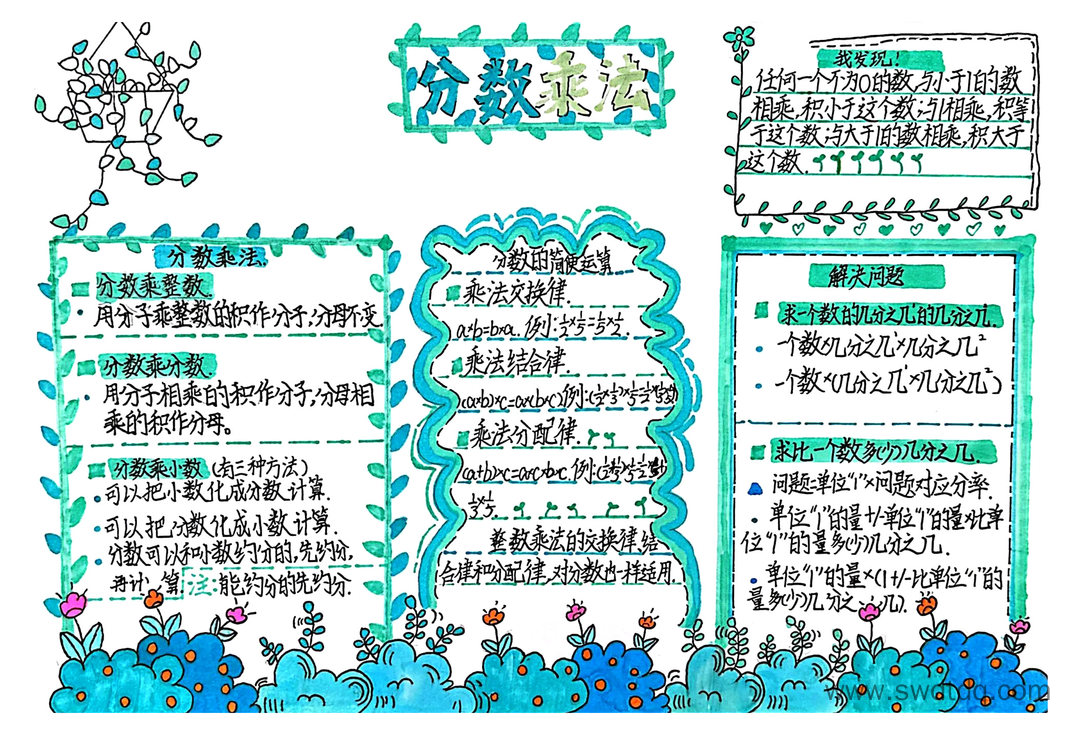 分数乘法
我发现!
任何一个不为0的数与小于1的数
相乘,积小于这个数;与1相乘,积等
于这个数;与大于1的数相乘,积大于
这个数.
分数乘法.
分数乘整数.
用分子乘整数的积作分子,分母不变
分数乘分数.
用分子相乘的积作分子,分母相
乘的积作分母。
分数乘小数(有三种方法)
可以把小数化成分数计算.
可以把分数化成小数计算.
分数可以和小数约分的,先约分,
再计算. 注:能约分的先约分.
分数的简便运算
乘法交换律.
a×b=b×a. 例:
乘法结合律.
(a×b)×c=a×(b×c)例:
乘法分配律.
(a+b)×c=a×c+b×c.例:
整数乘法的交换律,结
合律和分配律,对分数也一样适用.
解决问题
求一个数的几分之几的几分之几.
一个数×几分之几¹×几分之几²
一个数×(几分之几¹×几分之几²)
求比一个数多(少)几分之几.
问题:单位"1"×问题对应分率.
单位"1"的量+/-单位"1"的量×比单
位"1"的量多(少)几分之几.
单位"1"的量×(1+/-比单位"1"的
量多(少)几分之几).